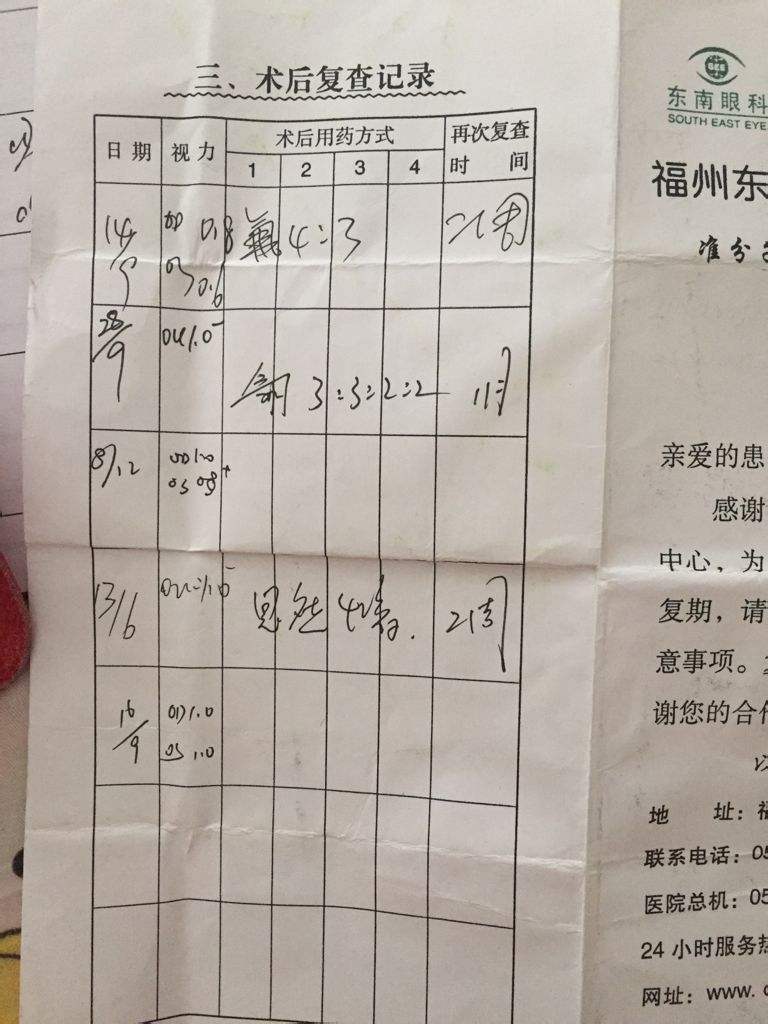 三、术后复查记录
日期 视力 术后用药方式 再次复查时间
1 2 3 4
14/9 OD 0.8 氟 4:3 2周
OS 0.6
28/9 OU 1.0-
3:3:2:2 1月
8/12 OD 1.0
OS 0.8+
13/6 OU 1.0 思然 4 2周
16/9 OD 1.0
OS 1.0
东南眼科
SOUTH EAST EYE
福州东
准分
亲爱的患
感谢
中心，为
复期，请
意事项。
谢您的合作
以
地 址：福
联系电话：05
医院总机：05
24小时服务热
网址：www.